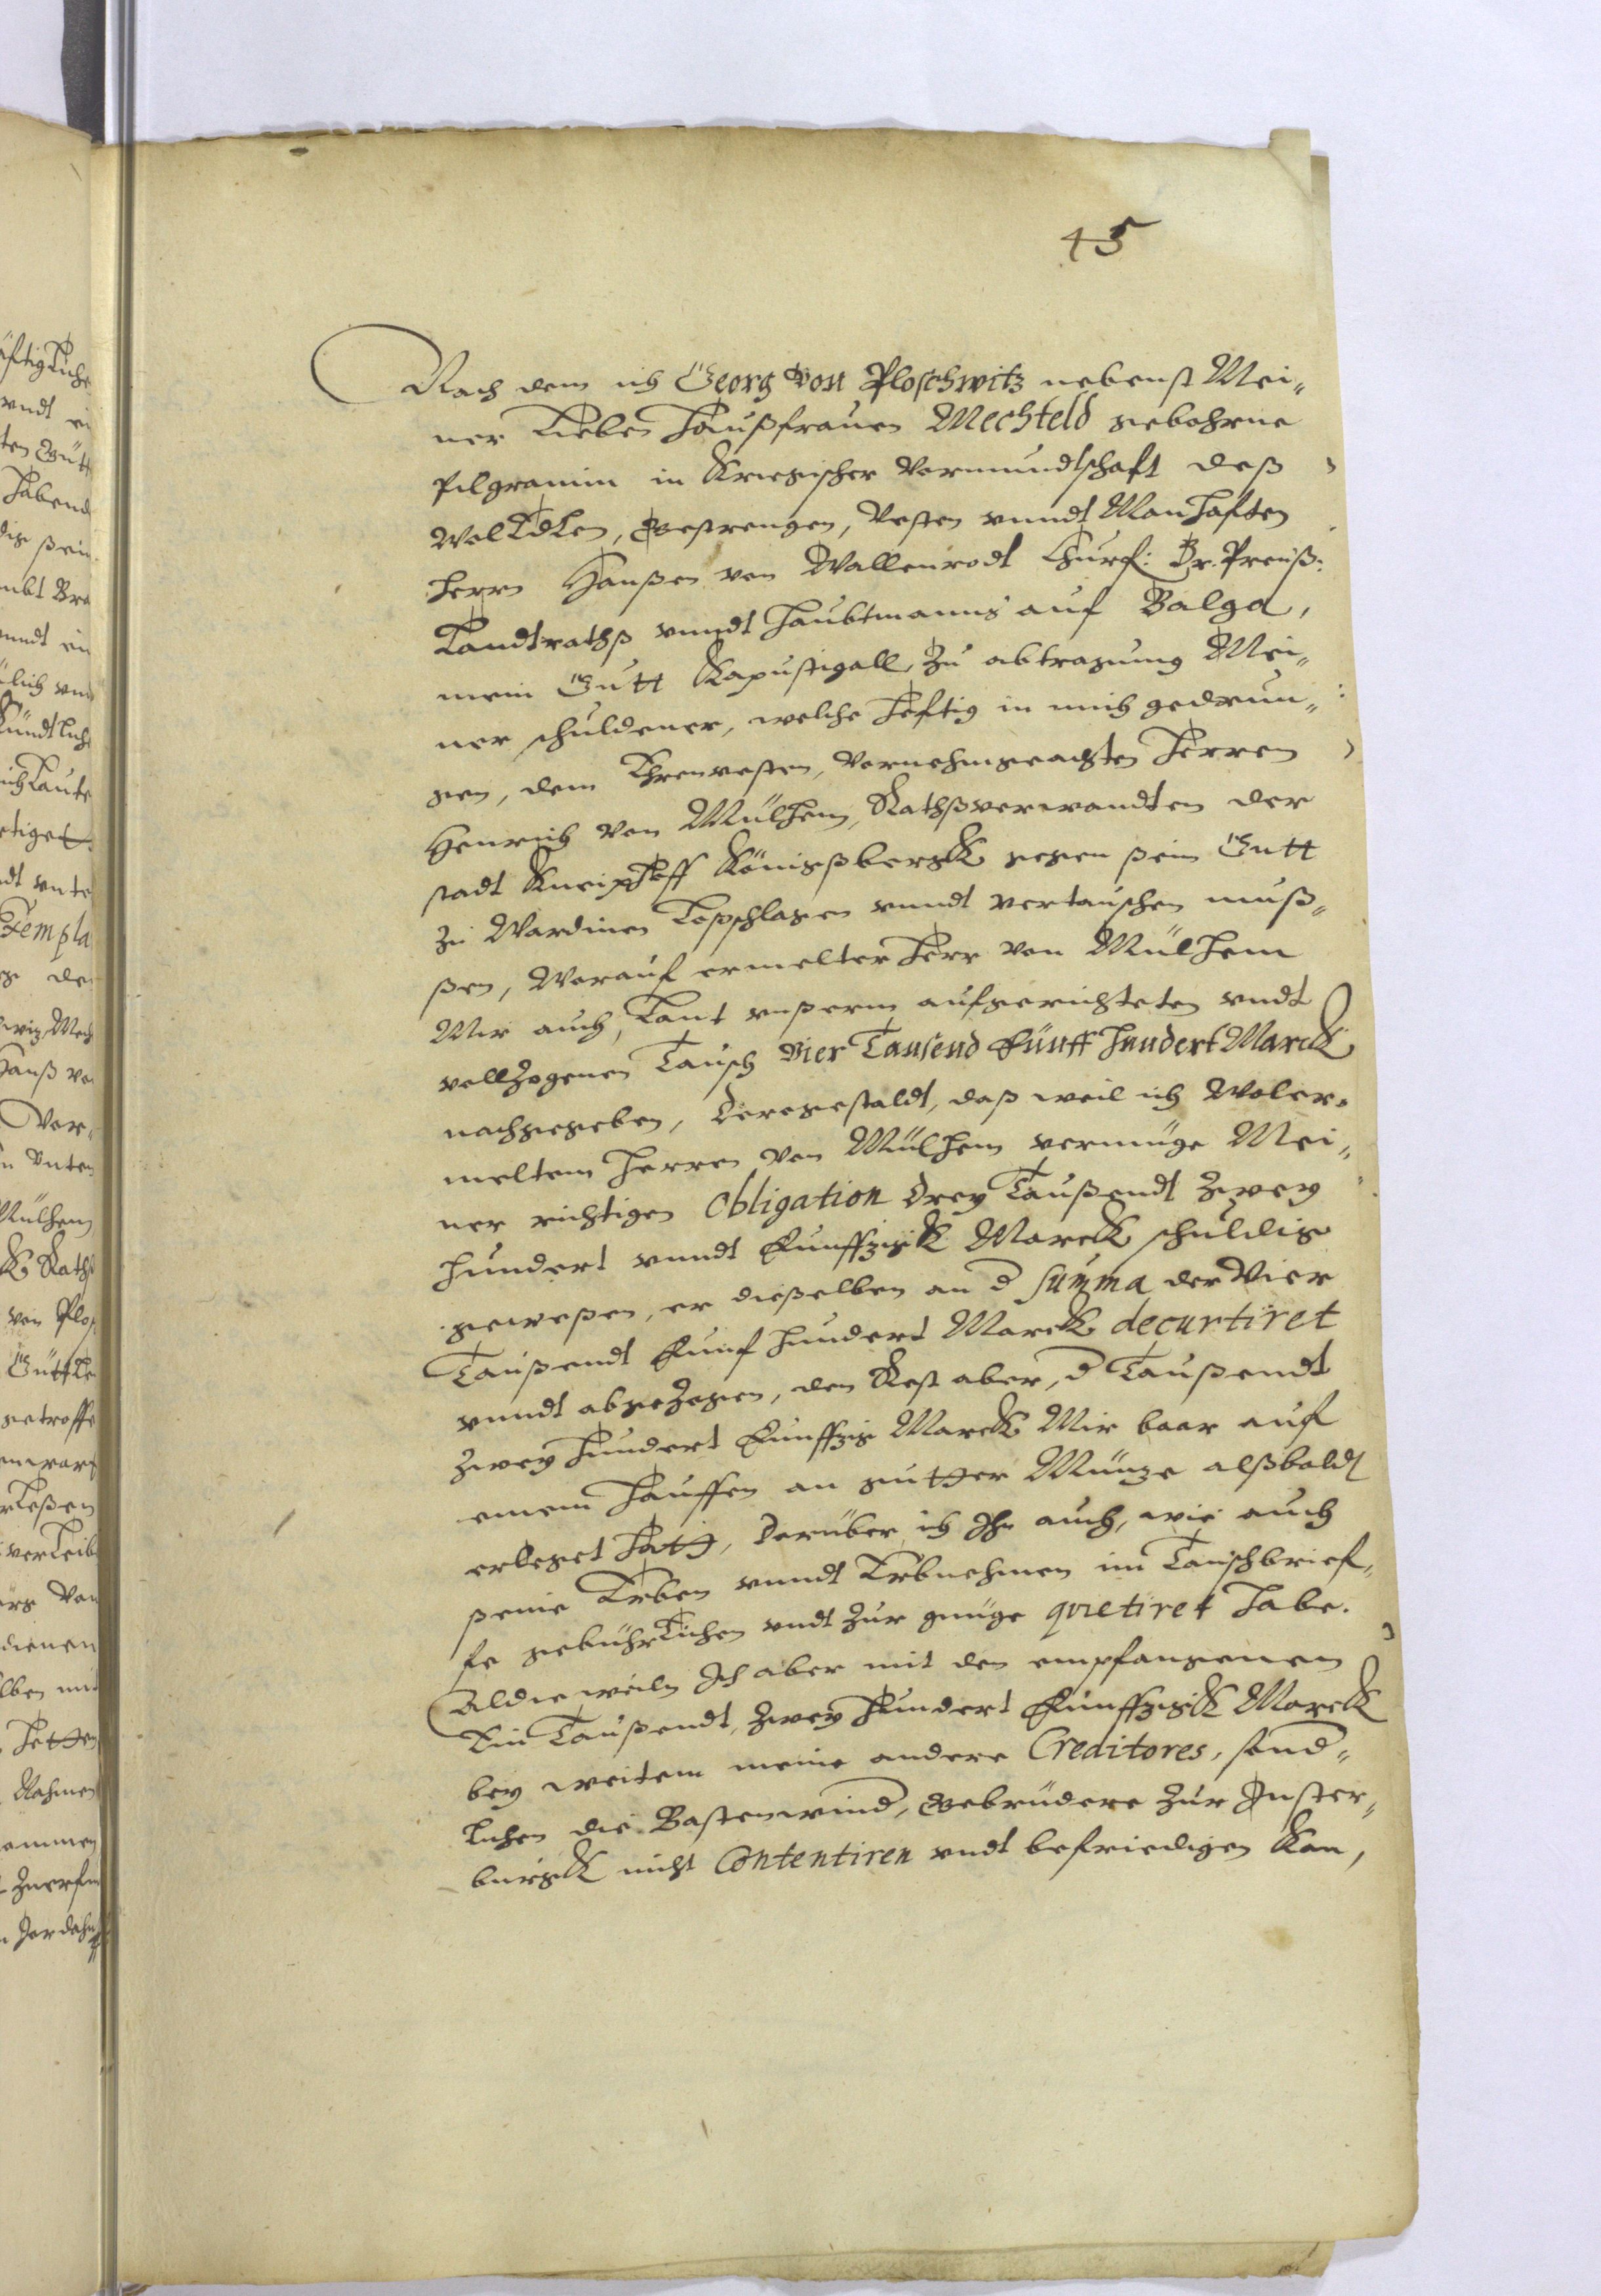 45
Nach dem ich Georg Von Ploschwitz nebenst Mei„
ner Lieben Haußfrauen Mechteld gebohrne
Pilgramin in Kriegischer Vormundtschaft deß
WolEdlen, Gestrengen, Vesten vnndt Manhaften
Herrn Hanßen von Wallenrodt Churf: Dr. Preüß:
Landtrathß vnndt Haubtmanns auf Balga,
mein Gutt Kapustigall, Zu abtragung Mei„
ner schuldener, welche Heftig in mich gedrun„
gen, dem Ehrenvesten, Vornehmgeachten Herren
Henrich Von Mülhem, Rathßverwandten der
stadt Kneiphoff Königßbergk gegen sein Gutt
Zu Wardinen Loßschlagen vnndt vertauschen muß„
ßen, Worauf ermelter Herr Von Mülhem
Mir auch, Laut vnßerm aufgerichteten vndt
vollZogenen Tausch Vier Tausend Fünff Hundert Marck
nachgegeben, Deregestaldt, daß weil ich Woler„
meltem Herren Von Mülhem vermüge Mei„
ner richtigen Obligation Drey Taußendt Zwey
Hundert vnndt Funffzigk Marck schuldig
geweßen, er dieselben an d Summa der Vier
Taußendt Funf Hundert Marck decurtiret
vnndt abgeZogen, den Rest aber, d Taußendt
Zwey Hundert Funffzig Marck Mir baar auf
einem Hauffen an gutter Müntze alßbaldt
erleget Hatt, Darüber ich Ihn auch, wie auch
seine Erben vnndt Erbnehmen im Tauschbrief„
fe gebührlichen vndt Zur gnüge quietiret Habe.
Aldieweiln Ich aber mit den empfangenen
Ein Taußendt, Zwey Hundert Funffzigk Marck
bey weitem meine andere Creditores, sond„
lichen die Bastenwind, Gebrüdere Zur Inster„
burgk nicht Contentiren vndt befriedigen Kan,